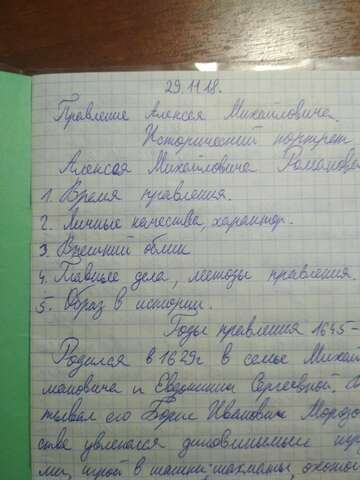 29.11.18.
Правление Алексея Михайловича.
Исторический портрет
Алексея Михайловича Романова
1. Время правления.
2. Личные качества, характер.
3. Внешний облик
4. Главные дела, методы правления.
5. Образ в истории.
Годы правления 1645-
Родился в 1629г в семье Михаи
мановича и Евдокиии Сергеевной,
тывал его Борис Иванович Морозо
стве увлекался
ми, игрой в шашки-шахматы, охотой